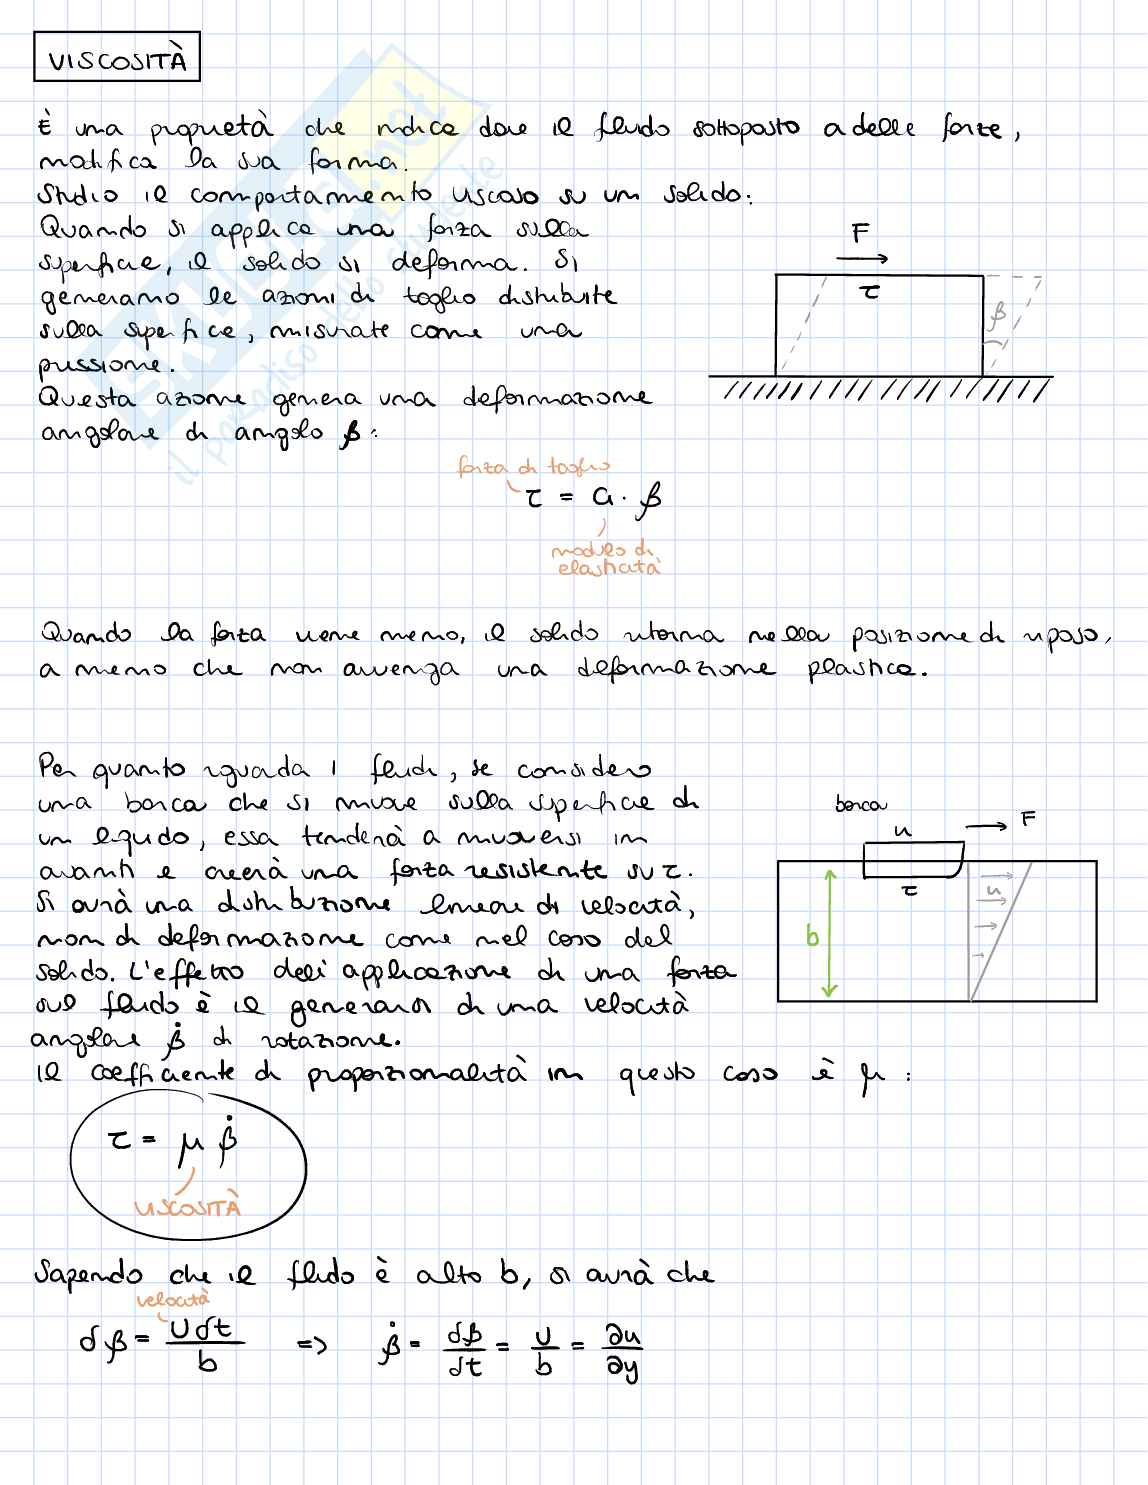 VISCOSITÀ
È una proprietà che indica dove il fluido sottoposto a delle forze,
modifica la sua forma.
Studio il comportamento viscoso su un solido:
Quando si applica una forza sulla
superficie, il solido si deforma. Si
generano le azioni di taglio distribuite
sulla superfice, misurate come una
pressione.
Questa azione genera una deformazione
angolare di angolo β:
F
τ
β
forza di taglio
τ = G · β
modulo di
elasticità
Quando la forza viene meno, il solido ritorna nella posizione di riposo,
a meno che non avvenga una deformazione plastica.
Per quanto riguarda i fluidi, se considero
una barca che si muove sulla superficie di
un liquido, essa tenderà a muoversi in
avanti e creerà una forza resistente su τ.
Si avrà una distribuzione lineare di velocità,
non di deformazione come nel caso del
solido. L'effetto dell'applicazione di una forza
sul fluido è il generarsi di una velocità
angolare β̇ di rotazione.
Il coefficiente di proporzionalità in questo caso è μ:
barca
u
F
τ
u
b
τ = μ β̇
VISCOSITÀ
Sapendo che il fluido è alto b, si avrà che
velocità
dβ = U dt / b => β̇ = dβ/dt = U/b = ∂u/∂y
SKUOLA.net
il paradiso dello studente